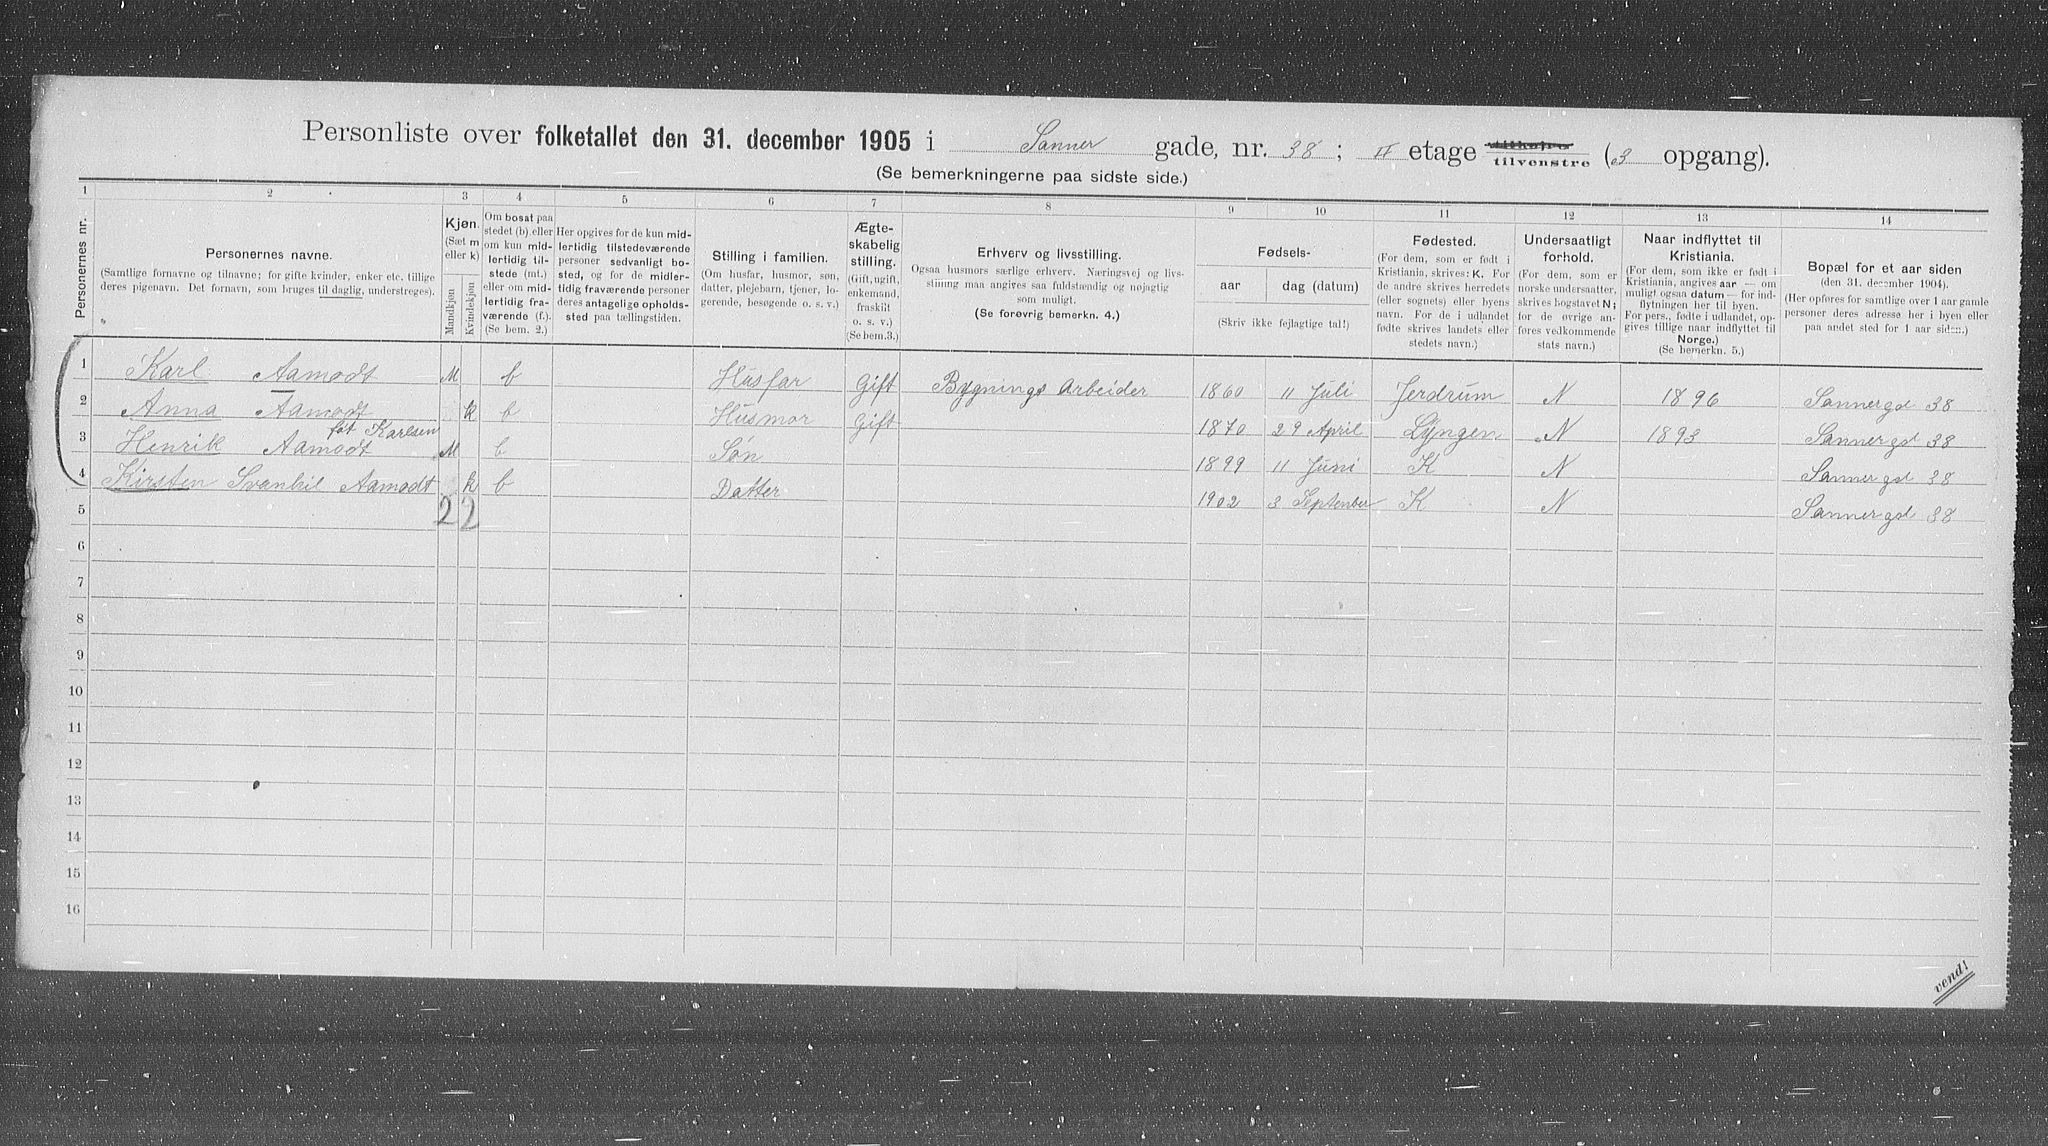 Personliste over folketallet den 31. december 1905 i Sanner gade, nr. 38; II etage tilhøjre tilvenstre (3 opgang).
(Se bemerkningerne paa sidste side.)
1 2 3 4 5 6 7 8 9 10 11 12 13 14
Personernes nr.
Personernes navne.
(Samtlige fornavne og tilnavne; for gifte kvinder, enker etc. tillige
deres pigenavn. Det fornavn, som bruges til daglig, understreges).
Kjøn.
(Sæt m
eller k)
Mandkjøn
Kvindekjøn
Om bosat paa
stedet (b) eller
om kun mid-
lertidig til-
stede (mt.)
eller om mid-
lertidig fra-
værende (f.).
(Se bem. 2.)
Her opgives for de kun mid-
lertidig tilstedeværende
personer sedvanligt bo-
sted, og for de midler-
tidig fraværende personer
deres antagelige opholds-
sted paa tællingstiden.
Stilling i familien.
(Om husfar, husmor, søn,
datter, plejebarn, tjener, lo-
gerende, besøgende o. s. v.)
Ægte-
skabelig
stilling.
(Gift, ugift,
enkemand,
fraskilt
o. s. v.)
(Se bem.3.)
Erhverv og livsstilling.
Ogsaa husmors særlige erhverv. Næringsvej og livs-
stilling maa angives saa fuldstændig og nøjagtig
som muligt.
(Se forøvrig bemerkn. 4.)
Fødsels-
aar
dag (datum)
(Skriv ikke fejlagtige tal!)
Fødested.
(For dem, som er født i
Kristiania, skrives: K. For
de andre skrives herredets
(eller sognets) eller byens
navn. For de i udlandet
fødte skrives landets eller
stedets navn.)
Undersaatligt
forhold.
(For dem, som er
norske undersaatter,
skrives bogstavet N;
for de øvrige an-
føres vedkommende
stats navn.)
Naar indflyttet til
Kristiania.
(For dem, som ikke er født i
Kristiania, angives aar — om
muligt ogsaa datum — for ind-
flytningen her til byen.
For pers., fødte i udlandet, op-
gives tillige naar indflyttet til
Norge.)
(Se bemerkn. 5.)
Bopæl for et aar siden
(den 31. december 1904).
(Her opføres for samtlige over 1 aar gamle
personer deres adresse her i byen eller
paa andet sted for 1 aar siden.)
1 Karl Aamodt M b Husfar Gift Bygnings Arbeider 1860 11 Juli Jerdrum N 1896 Sannergd 38
2 Anna Aamodt k b Husmor Gift 1870 29 April Lyngen N 1893 Sannergd 38
føt Karlsen
3 Henrik Aamodt M b Søn 1899 11 Juni K N Sannergd 38
4 Kirsten Svanhil Aamodt k b Datter 1902 3 September K N Sannergd 38
5 2 2
6
7
8
9
10
11
12
13
14
15
16
vend!